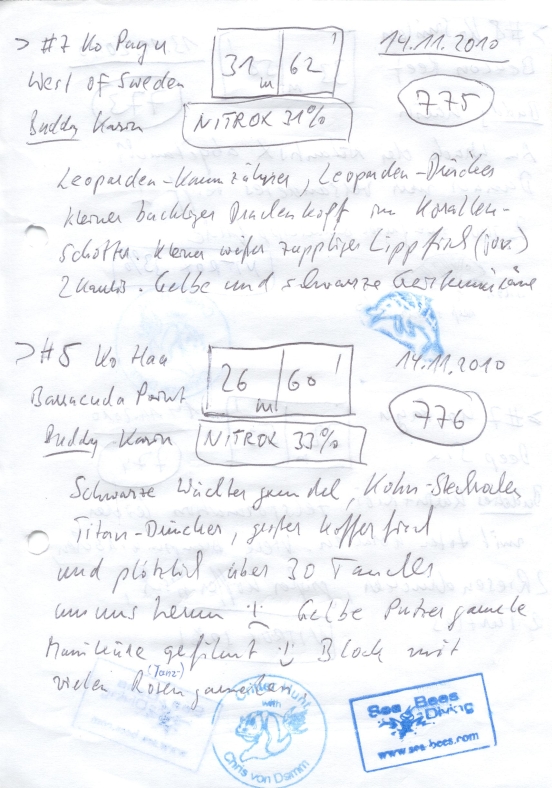 > #7 Ko Payu
31 m | 62 '
14.11.2010
West of Sweden
775
Buddy Karin
NITROX 31%
Leoparden-Kammzähner, Leoparden-Drücker
kleiner buckliger Drachenkopf im Korallen-
schotter. kleiner weißer zappliger Lippfisch (juv.)
2 . Gelbe und schwarze
> #5 Ko Haa
26 m | 60 '
14.11.2010
Barracuda Point
776
Buddy Karin
NITROX 33%
Schwarze Wächtergrundel, Kuhn-Stechrochen
Titan-Drücker, großer Kofferfisch
und plötzlich über 30 Taucher
um uns herum :( Gelbe Putzergarnele
Maniküre gefilmt :) Block mit
vielen (Tanz) Rosengarnelen
with
Chris von Damm
Sea Bees
Diving
www.sea-bees.com